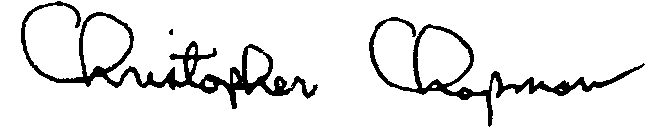 Christopher Chapman